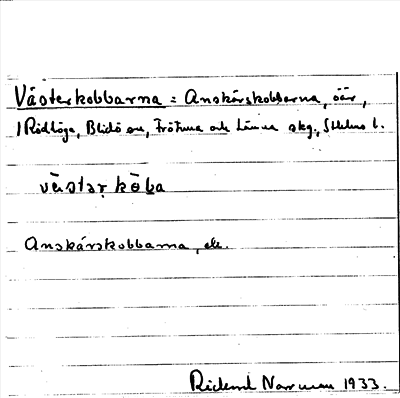 Västerkobbarna = Anskärskobbarna, öar,
i Rödlöga, Blidö sn, Frötuna och Länna skg., Sthlms l.
västəṛ kö̀ba
Anskärskobbarna, ... 
Rickard Norrman 1933.